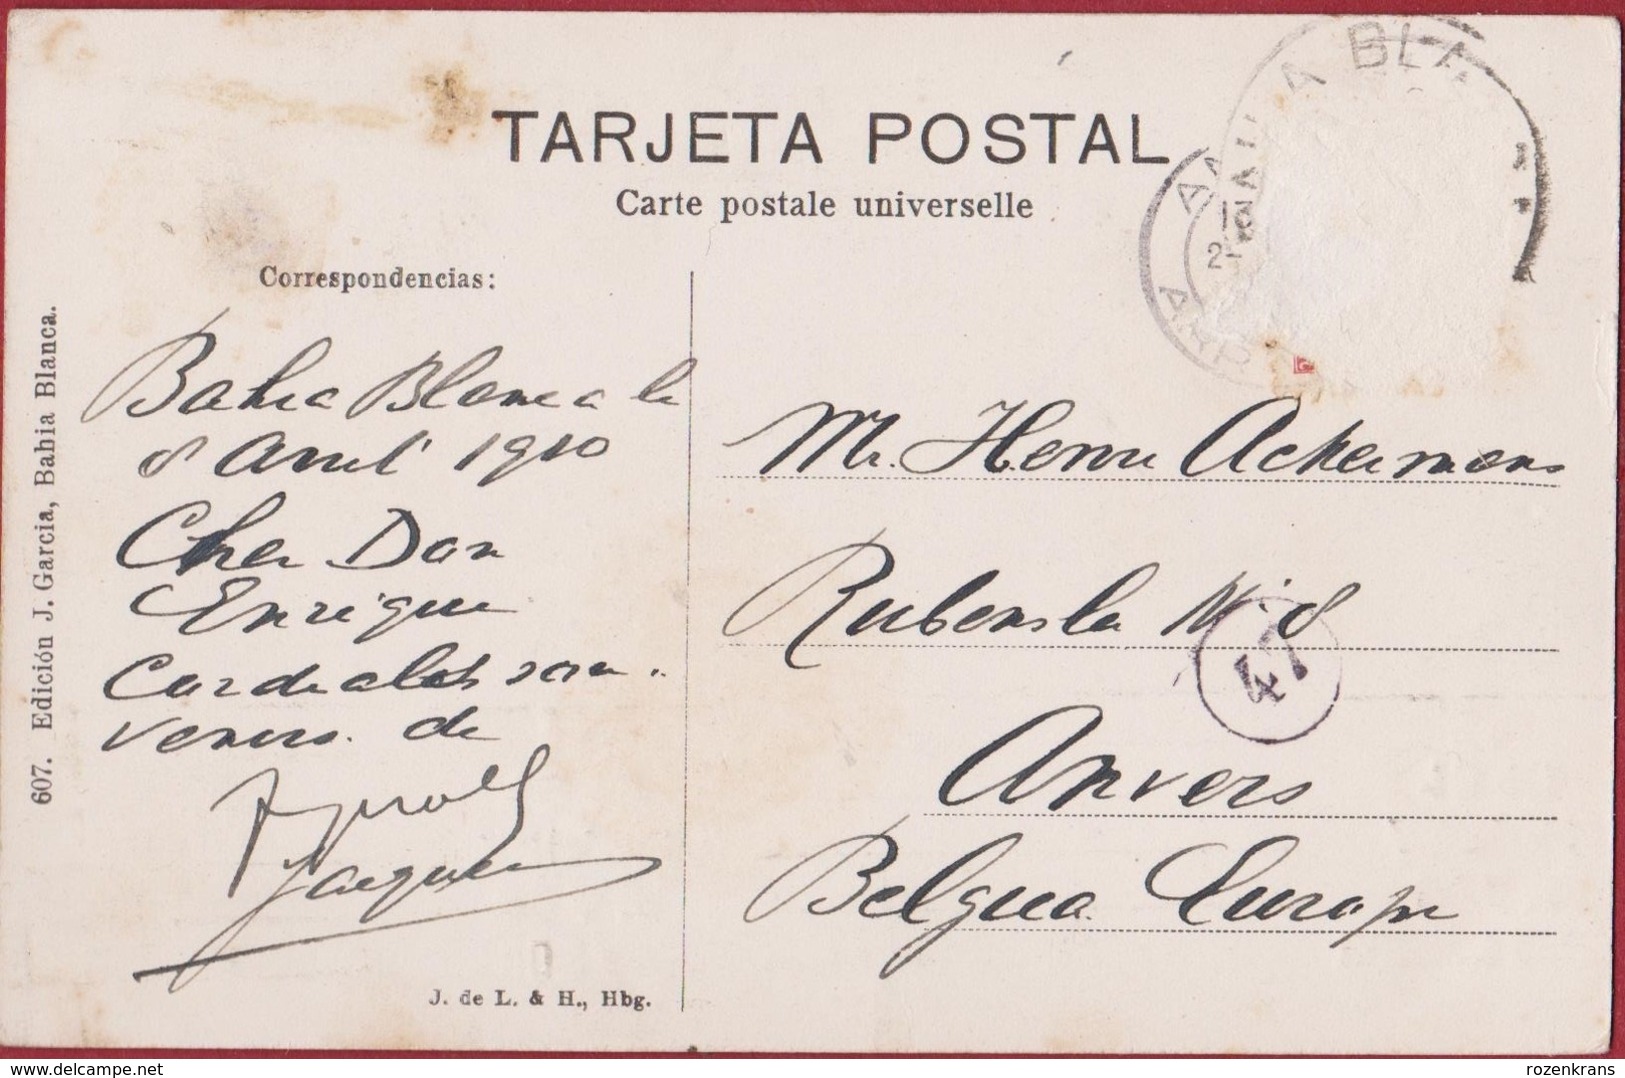 TARJETA POSTAL
Carte postale universelle
Correspondencias:
Bahia Blanca le
8 Avril 1910
Cher Don
Enrique
Cordiales sou.
venirs de
Jacques
607. Edición J. Garcia, Bahia Blanca.
J. de L. & H., Hbg.
BAHIA BLA
Mr. Henri Ackermans
Rubensla N: 8
47
Anvers
Belgica Europe
delcampe.net
rozenkrans